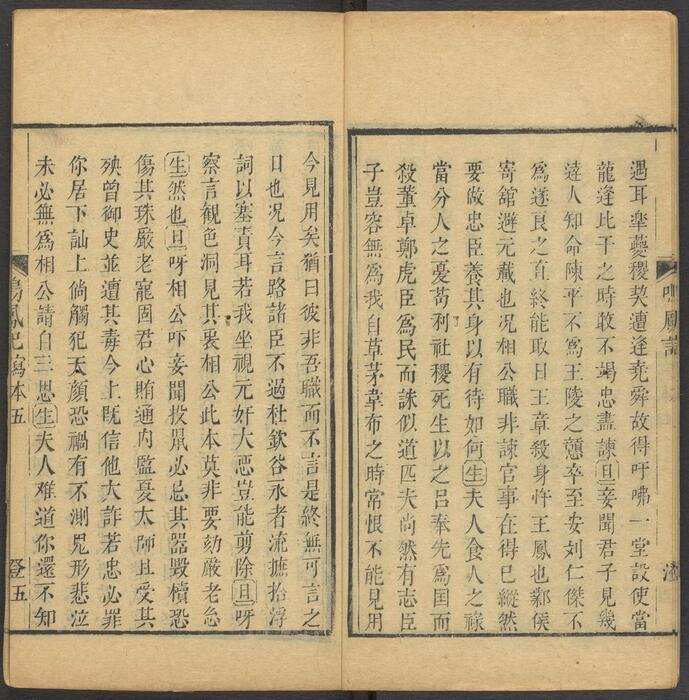 鳴鳳記
遇耳皐夔稷契遭逢堯舜故得吁咈一堂設使當
龍逢比干之時敢不竭忠盡諫旦妾聞君子見幾
達人知命陳平不爲王陵之戇卒至安刘仁傑不
爲遂良之直終能取日王章殺身忤王鳳也鄴侯
寄舘避元載也况相公職非諫官事在得已縱然
要做忠臣養其身以有待如何生夫人食人之祿
當分人之憂苟利社稷死生以之吕奉先爲国而
殺董卓鄭虎臣爲民而誅似道匹夫尚然有志臣
子豈容無爲我自草茅韋布之時常恨不能見用
今見用矣猶曰彼非吾職而不言是終無可言之
日也况今言路諸臣不過杜欽谷永者流摭拾浮
詞以塞責耳若我坐視元奸大惡豈能剪除旦呀
察言観色洞見其衷相公此本莫非要劾嚴老怎
生然也旦呀相公吓妾聞投鼠必忌其噐毀櫝恐
傷其珠嚴老寵固君心賄通内監憂太師且受其
殃曾御史並遭其毒今上既信他大詐若忠必罪
你居下訕上倘觸犯天顔恐禍有不測鬼形悲泣
未必無爲相公請自三思生夫人难道你還不知
鳥鳳已寫本五
登五